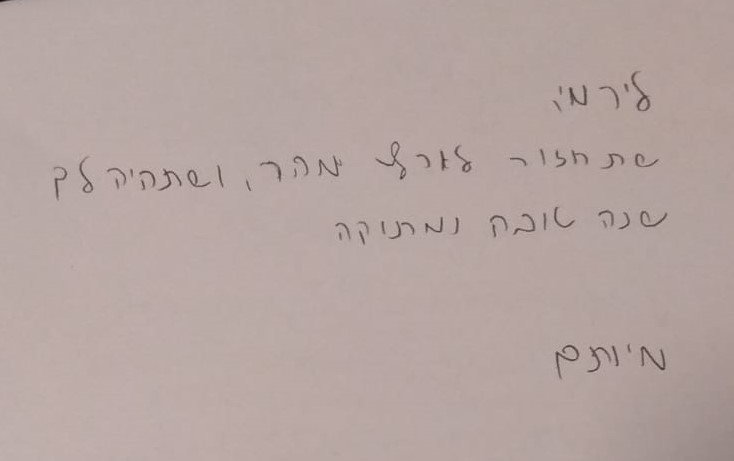 לירמי,
שתחזור לארץ מהר, ושתהיה לך
שנה טובה ומתוקה
מיותם